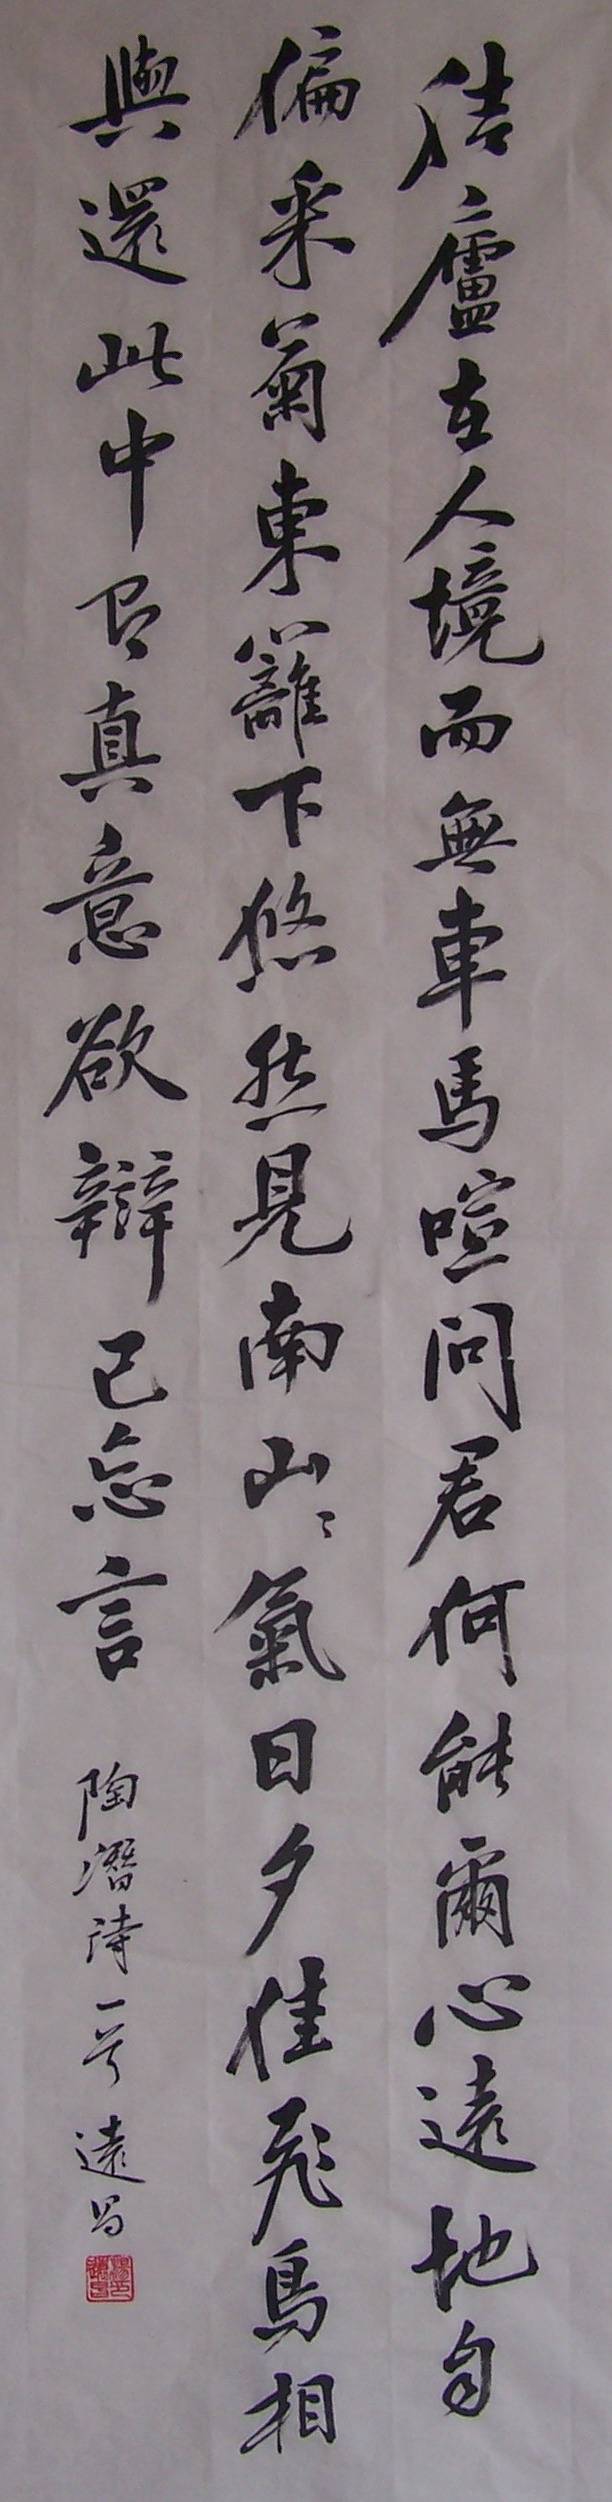 结廬在人境而無車馬喧問君何能爾心遠地自
偏采菊東籬下悠然見南山山氣日夕佳飛鳥相
與還此中有真意欲辯已忘言
陶潛詩一首 遠昌